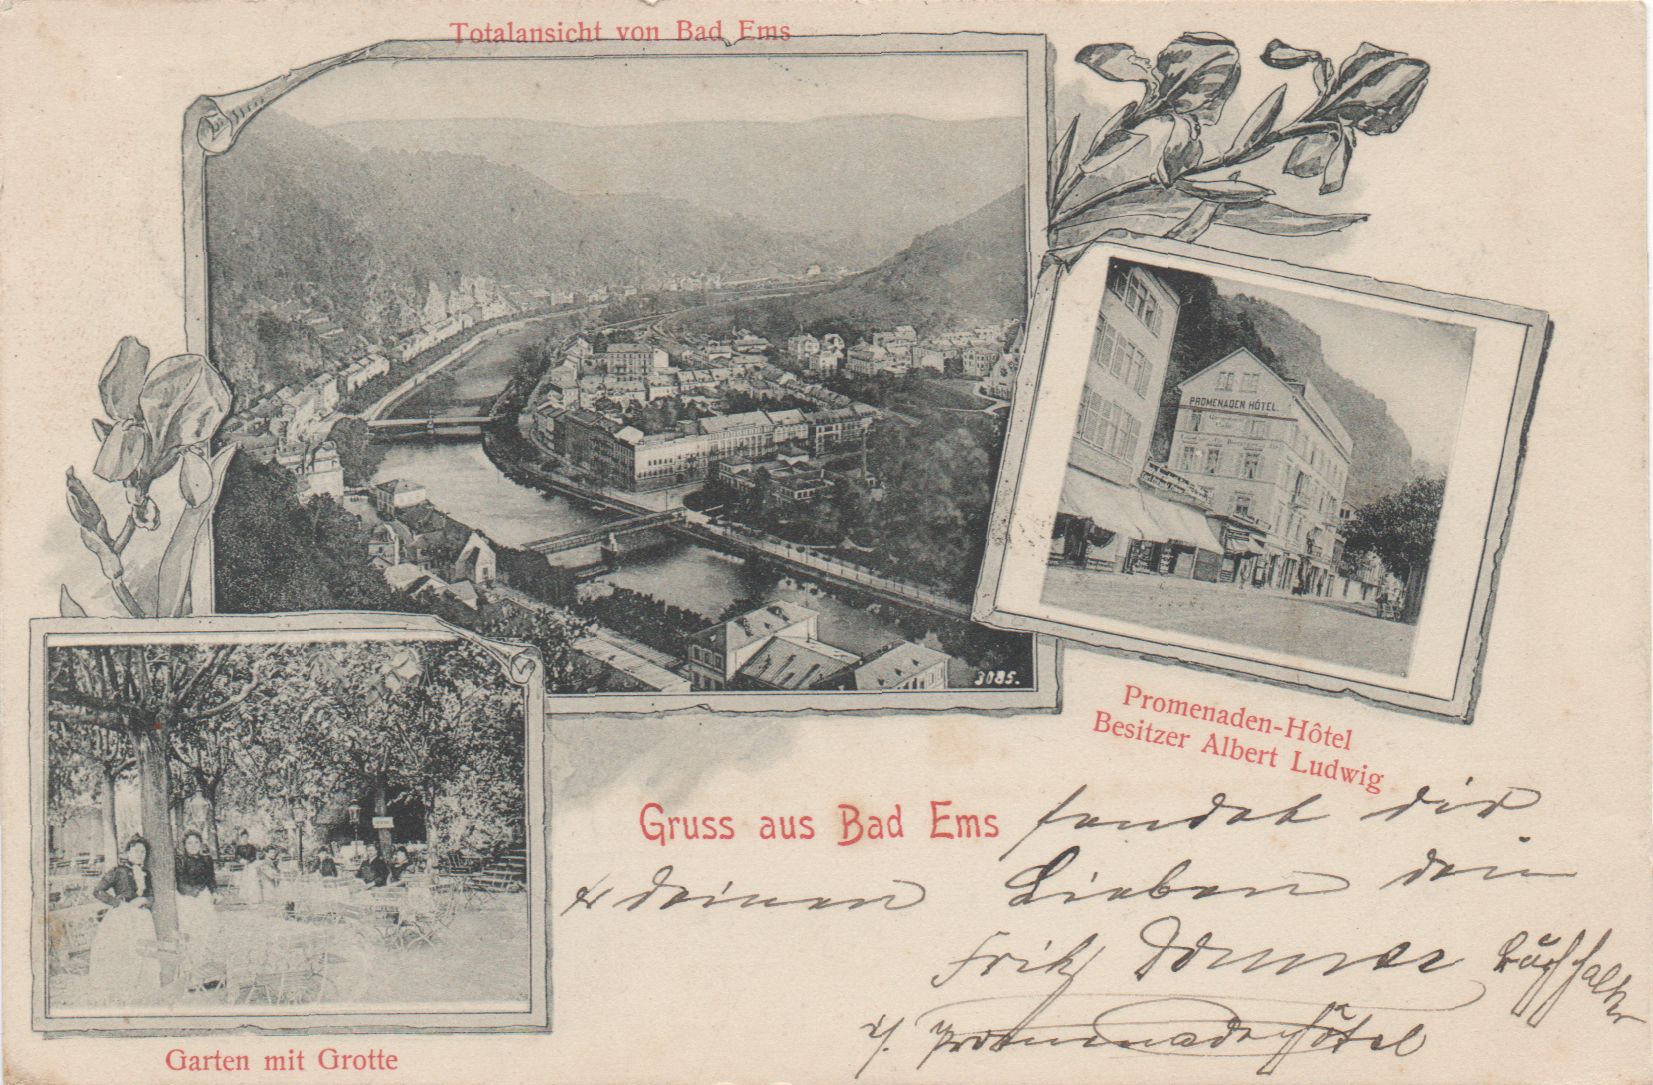 Totalansicht von Bad Ems
PROMENADEN HÔTEL.
3085.
Promenaden-Hôtel
Besitzer Albert Ludwig
Gruss aus Bad Ems
sendet dir
& deinen Lieben dein
Fritz
Buchhalter
Promenade Hôtel
Garten mit Grotte